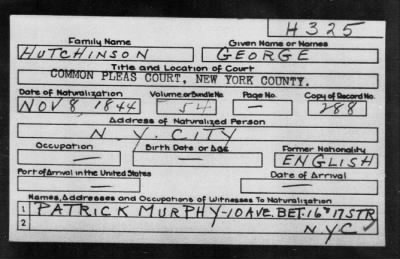 H325
Family Name Given Name or Names
HUTCHINSON GEORGE
Title and Location of Court
COMMON PLEAS COURT, NEW YORK COUNTY.
Date of Naturalization Volume or Bundle No. Page No. Copy of Record No.
NOV 8, 1844 54 — 288
Address of Naturalized Person
N.Y. CITY
Occupation Birth Date or Age Former Nationality
— — ENGLISH
Port of Arrival in the United States Date of Arrival
— —
Names, Addresses and Occupations of Witnesses To Naturalization
1 PATRICK MURPHY-10 AVE. BET. 16 & 17 STR
2 N.Y.C